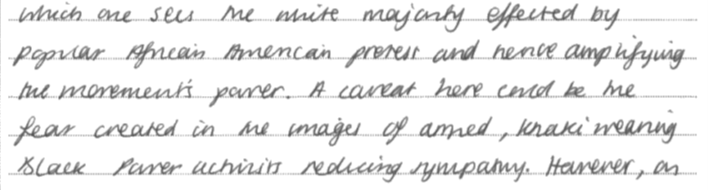 which one sees the white majority effected by
popular African American protest and hence amplifying
the movement's power. A caveat here could be the
fear created in the images of armed, khaki wearing
Black Power activists reducing sympathy. However, on